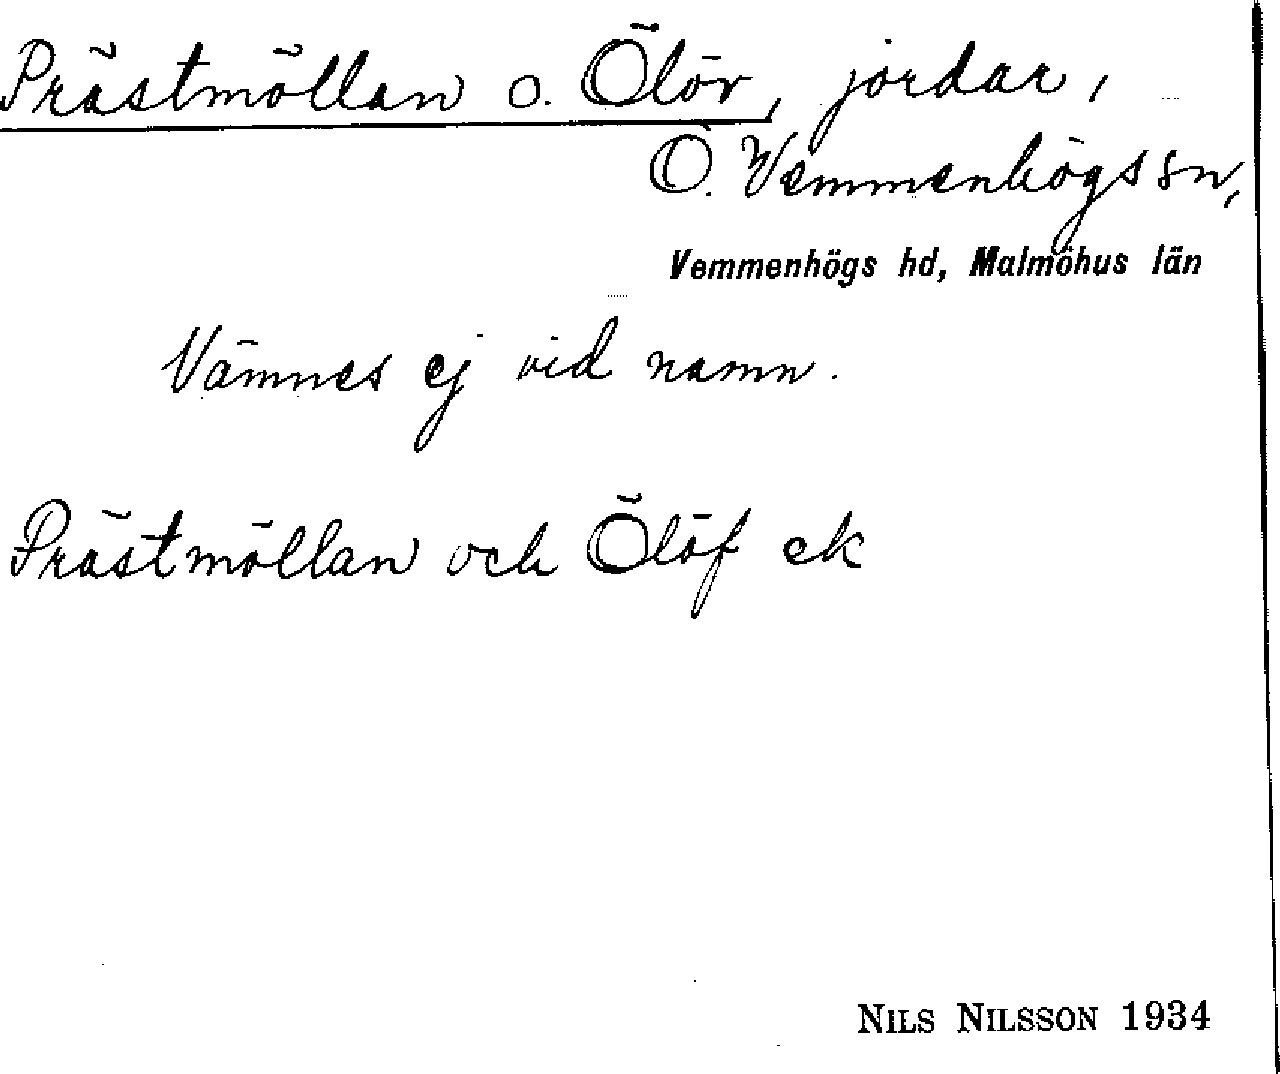 Prästmöllan o. Ölöv, jordar,
Ö. Vemmenhögs sn,
Vemmenhögs hd, Malmöhus län
Nämnes ej vid namn.
Prästmöllan och Ölöf ek
NILS NILSSON 1934